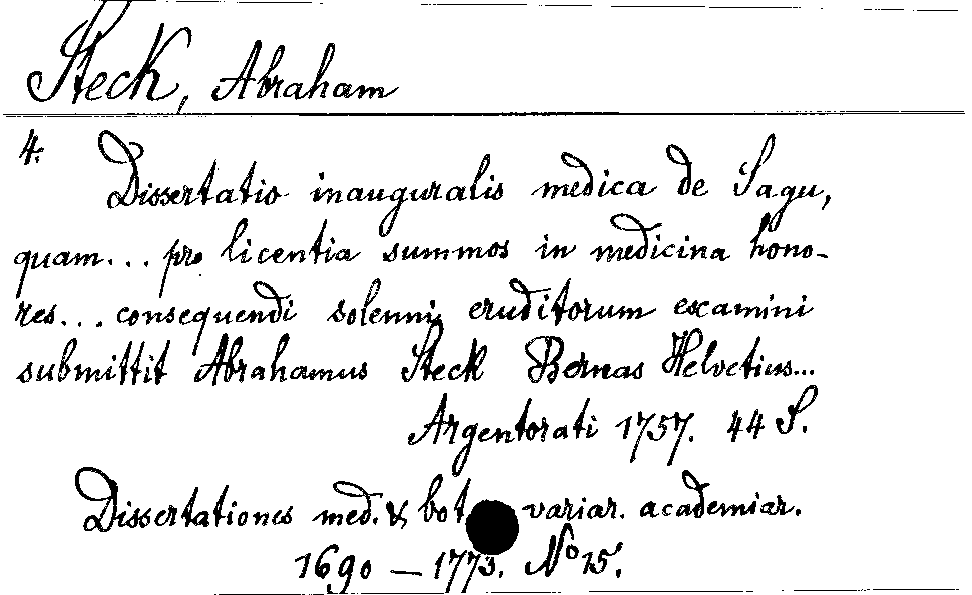 Steck, Abraham
4.
Dissertatio inauguralis medica de Sagu,
quam... pro licentia summos in medicina hono-
res... consequendi solenni eruditorum examini
submittit Abrahamus Steck Bernas Helvetius...
Argentorati 1757. 44 S.
Dissertationes med. & bot variar. academiar.
1690 — 1773. No 15.